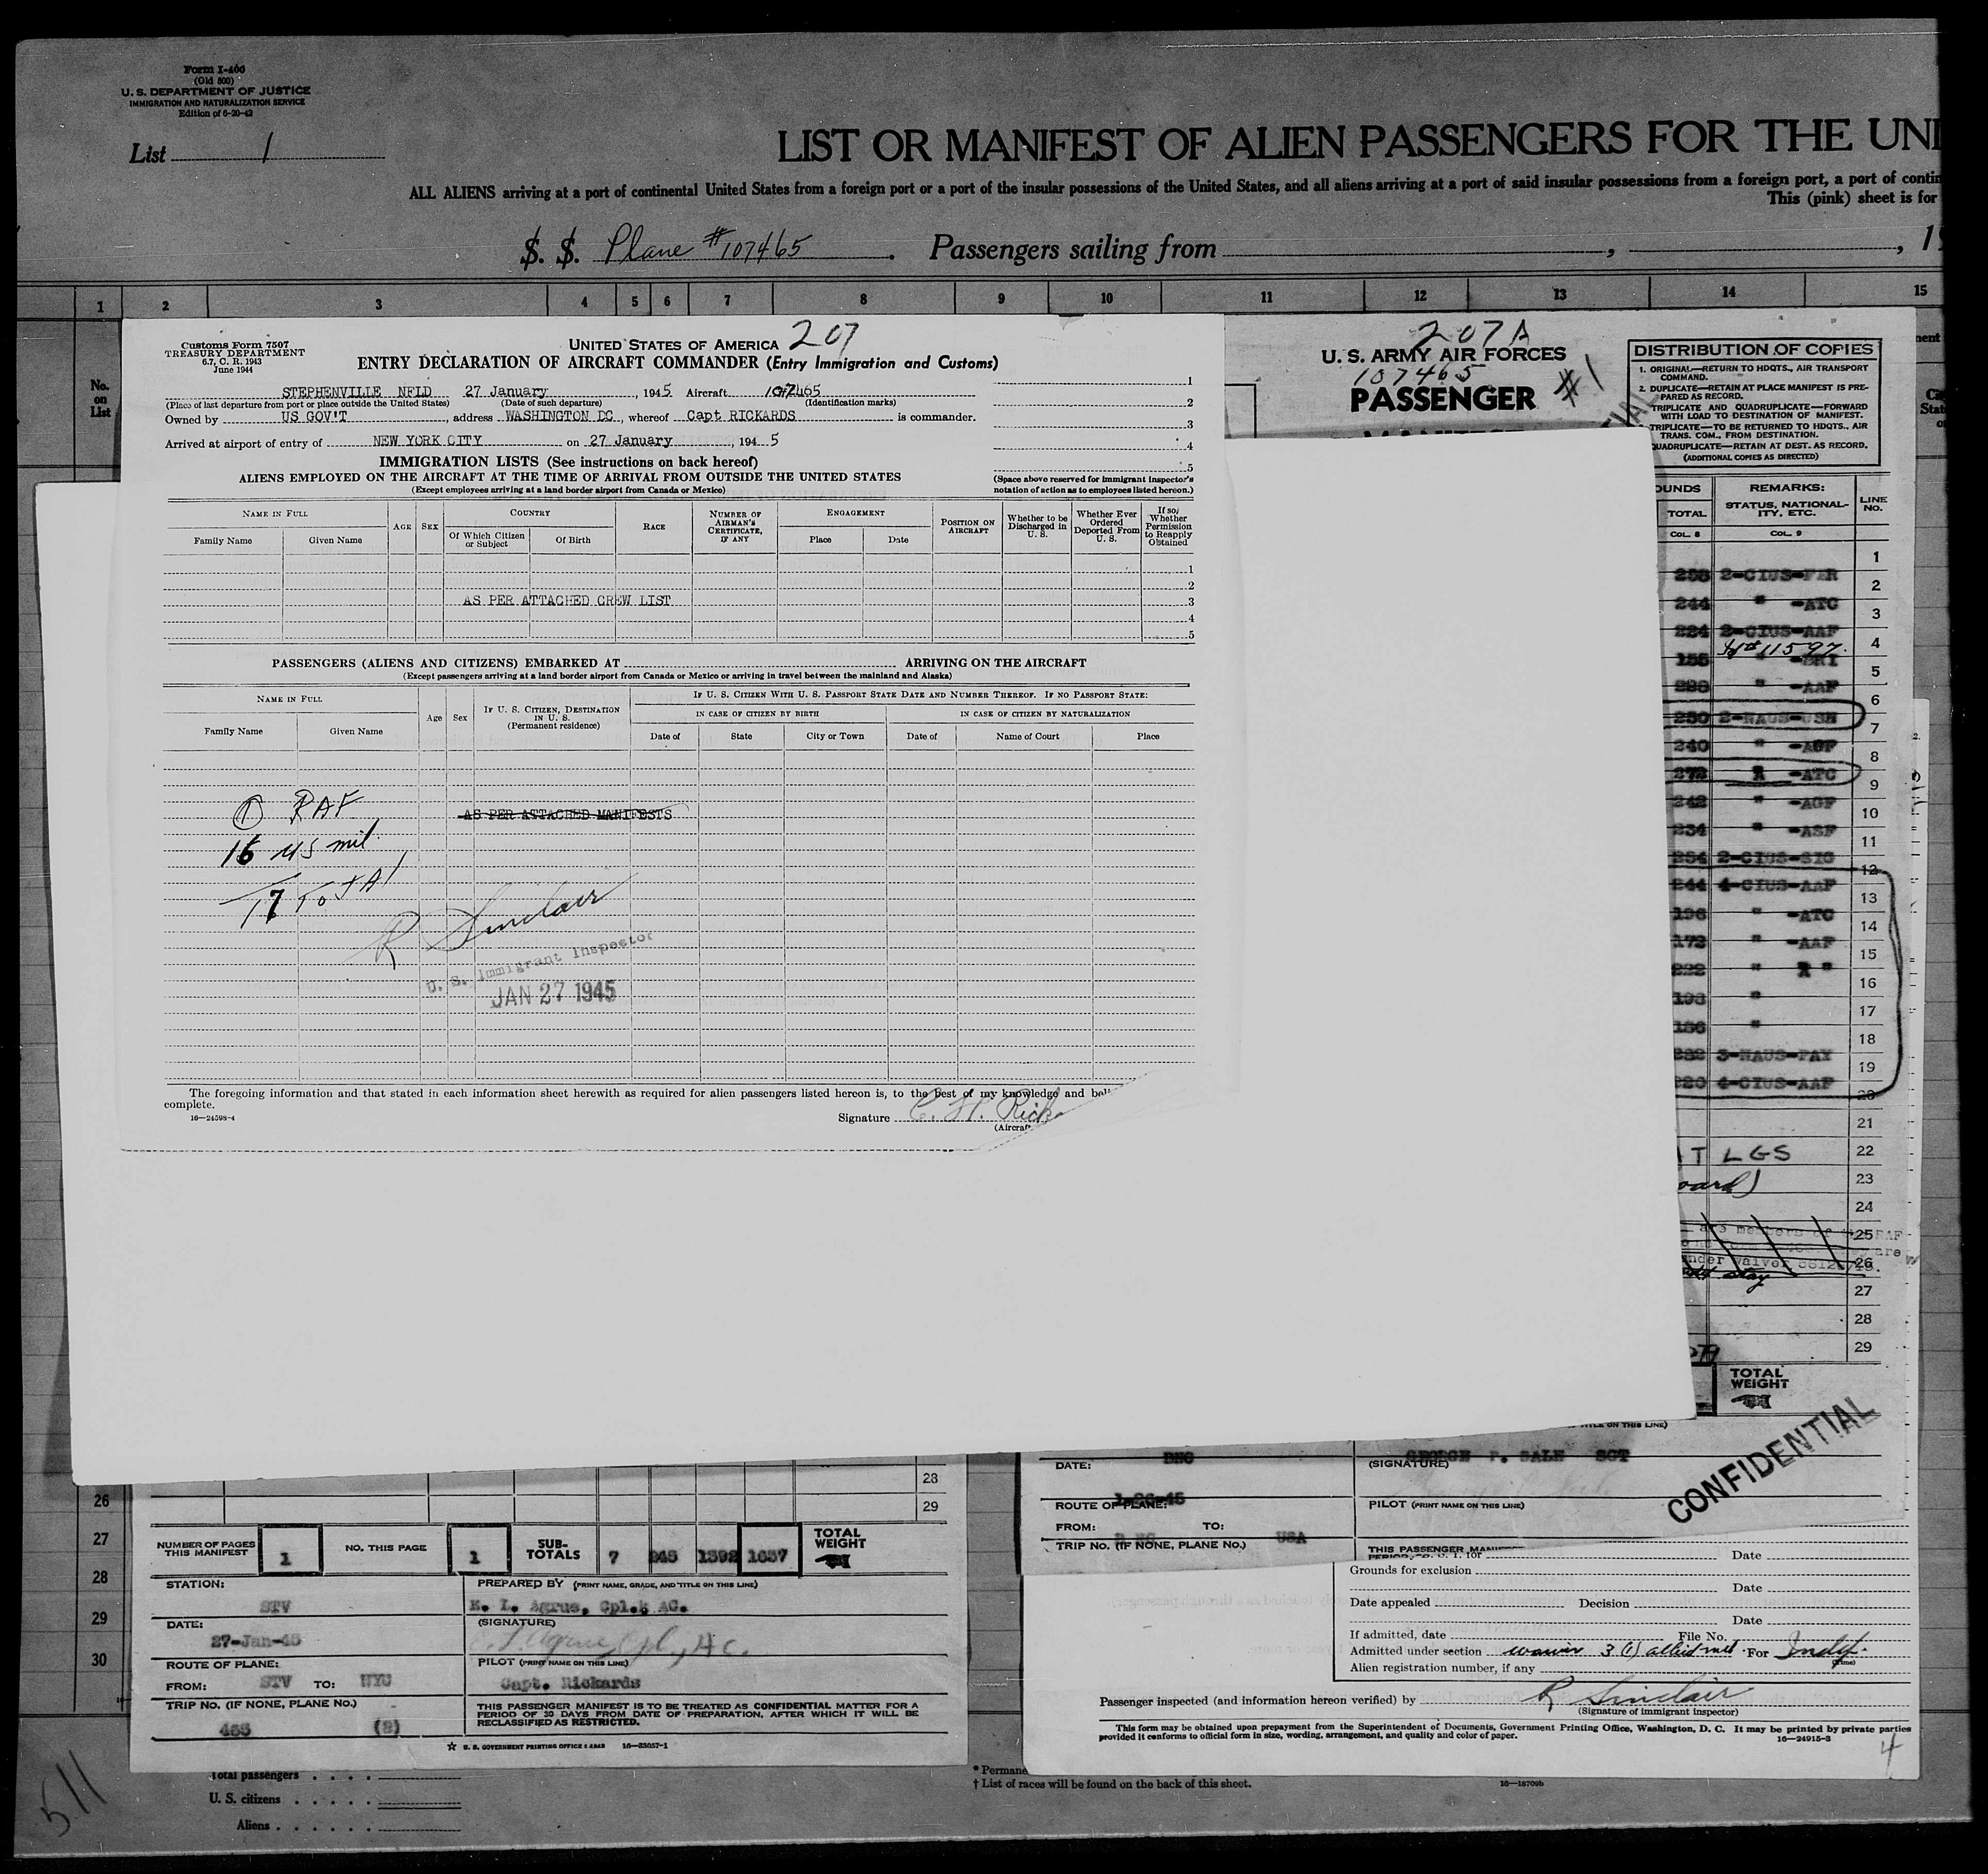 Form I-400
(Old 500)
U. S. DEPARTMENT OF JUSTICE
IMMIGRATION AND NATURALIZATION SERVICE
Edition of 6-20-42
List 1
LIST OR MANIFEST OF ALIEN PASSENGERS FOR THE UNI
ALL ALIENS arriving at a port of continental United States from a foreign port or a port of the insular possessions of the United States, and all aliens arriving at a port of said insular possessions from a foreign port, a port of contin
This (pink) sheet is for
S. S. Plane #107465 . Passengers sailing from , , 19
1 2 3 4 5 6 7 8 9 10 11 12 13 14 15
No. on List
Customs Form 7507
TREASURY DEPARTMENT
6.7, C. R. 1943
June 1944
UNITED STATES OF AMERICA 207
ENTRY DECLARATION OF AIRCRAFT COMMANDER (Entry Immigration and Customs)
STEPHENVILLE NFLD 27 January, 1945 Aircraft 107465
(Place of last departure from port or place outside the United States) (Date of such departure) (Identification marks)
Owned by US GOV'T, address WASHINGTON DC, whereof Capt RICKARDS is commander.
Arrived at airport of entry of NEW YORK CITY on 27 January, 1945
1
2
3
4
5
IMMIGRATION LISTS (See instructions on back hereof)
ALIENS EMPLOYED ON THE AIRCRAFT AT THE TIME OF ARRIVAL FROM OUTSIDE THE UNITED STATES
(Except employees arriving at a land border airport from Canada or Mexico)
(Space above reserved for immigrant inspector's
notation of action as to employees listed hereon.)
NAME IN FULL
Family Name Given Name
AGE SEX
COUNTRY
Of Which Citizen or Subject Of Birth
RACE
NUMBER OF AIRMAN'S CERTIFICATE, IF ANY
ENGAGEMENT
Place Date
POSITION ON AIRCRAFT
Whether to be Discharged in U. S.
Whether Ever Ordered Deported From U. S.
If so, Whether Permission to Reapply Obtained
1
2
AS PER ATTACHED CREW LIST 3
4
5
PASSENGERS (ALIENS AND CITIZENS) EMBARKED AT ARRIVING ON THE AIRCRAFT
(Except passengers arriving at a land border airport from Canada or Mexico or arriving in travel between the mainland and Alaska)
NAME IN FULL
Family Name Given Name
Age Sex
IF U. S. CITIZEN, DESTINATION IN U. S.
(Permanent residence)
IF U. S. CITIZEN WITH U. S. PASSPORT STATE DATE AND NUMBER THEREOF. IF NO PASSPORT STATE:
IN CASE OF CITIZEN BY BIRTH IN CASE OF CITIZEN BY NATURALIZATION
Date of State City or Town Date of Name of Court Place
1 RAF
AS PER ATTACHED MANIFESTS
16 US mil.
17 Total
R Sinclair
U. S. Immigrant Inspector
JAN 27 1945
The foregoing information and that stated in each information sheet herewith as required for alien passengers listed hereon is, to the best of my knowledge and beli
complete.
16—24598-4
Signature C. H. Rick
(Aircraft
207A
U. S. ARMY AIR FORCES
107465
PASSENGER #1
DISTRIBUTION OF COPIES
1. ORIGINAL—RETURN TO HDQTS., AIR TRANSPORT COMMAND.
2. DUPLICATE—RETAIN AT PLACE MANIFEST IS PREPARED AS RECORD.
TRIPLICATE AND QUADRUPLICATE—FORWARD WITH LOAD TO DESTINATION OF MANIFEST.
TRIPLICATE—TO BE RETURNED TO HDQTS., AIR TRANS. COM., FROM DESTINATION.
QUADRUPLICATE—RETAIN AT DEST. AS RECORD.
(ADDITIONAL COPIES AS DIRECTED)
OUNDS
TOTAL
COL. 8
REMARKS:
STATUS, NATIONALITY, ETC.
COL. 9
LINE NO.
1
2-CIUS-FER 2
244 " -ATC 3
224 2-CIUS-AAF 4
" 5
" -AAF 6
250 2-NAUS-USN 7
240 " -AGF 8
" -ATC 9
242 " -AGF 10
234 " -ASF 11
2-CIUS-SIG 12
244 4-CIUS-AAF 13
196 " -ATC 14
172 " -AAF 15
222 " 16
" 17
186 " 18
3-NAUS-PAX 19
220 4-CIUS-AAF 20
21
T LGS 22
oard) 23
24
25
26
27
28
29
TOTAL WEIGHT
CONFIDENTIAL
DATE:
GEORGE P. SALE SGT
(SIGNATURE)
ROUTE OF PLANE:
PILOT (PRINT NAME ON THIS LINE)
FROM: TO: USA
TRIP NO. (IF NONE, PLANE NO.)
THIS PASSENGER
Date
Grounds for exclusion
Date
Date appealed Decision
Date
If admitted, date File No.
Admitted under section waiver 3 (1) allied mil. For Indef.
(Time)
Alien registration number, if any
Passenger inspected (and information hereon verified) by R Sinclair
(Signature of immigrant inspector)
This form may be obtained upon prepayment from the Superintendent of Documents, Government Printing Office, Washington, D. C. It may be printed by private parties
provided it conforms to official form in size, wording, arrangement, and quality and color of paper.
16—24915-3
4
28
29
26
27
28
29
30
NUMBER OF PAGES THIS MANIFEST 1 NO. THIS PAGE 1 SUB-TOTALS 7 1392 1637 TOTAL WEIGHT
STATION:
STV
PREPARED BY (PRINT NAME, GRADE, AND TITLE ON THIS LINE)
E. L. Agrue, Cpl., AC.
DATE:
27-Jan-45
(SIGNATURE)
ROUTE OF PLANE:
FROM: STV TO: NYC
PILOT (PRINT NAME ON THIS LINE)
Capt. Rickards
TRIP NO. (IF NONE, PLANE NO.)
465 (2)
THIS PASSENGER MANIFEST IS TO BE TREATED AS CONFIDENTIAL MATTER FOR A
PERIOD OF 30 DAYS FROM DATE OF PREPARATION, AFTER WHICH IT WILL BE
RECLASSIFIED AS RESTRICTED.
☆ U. S. GOVERNMENT PRINTING OFFICE 16—33057-1
Total passengers
U. S. citizens
Aliens
511
* Permane
† List of races will be found on the back of this sheet.
16—18709b